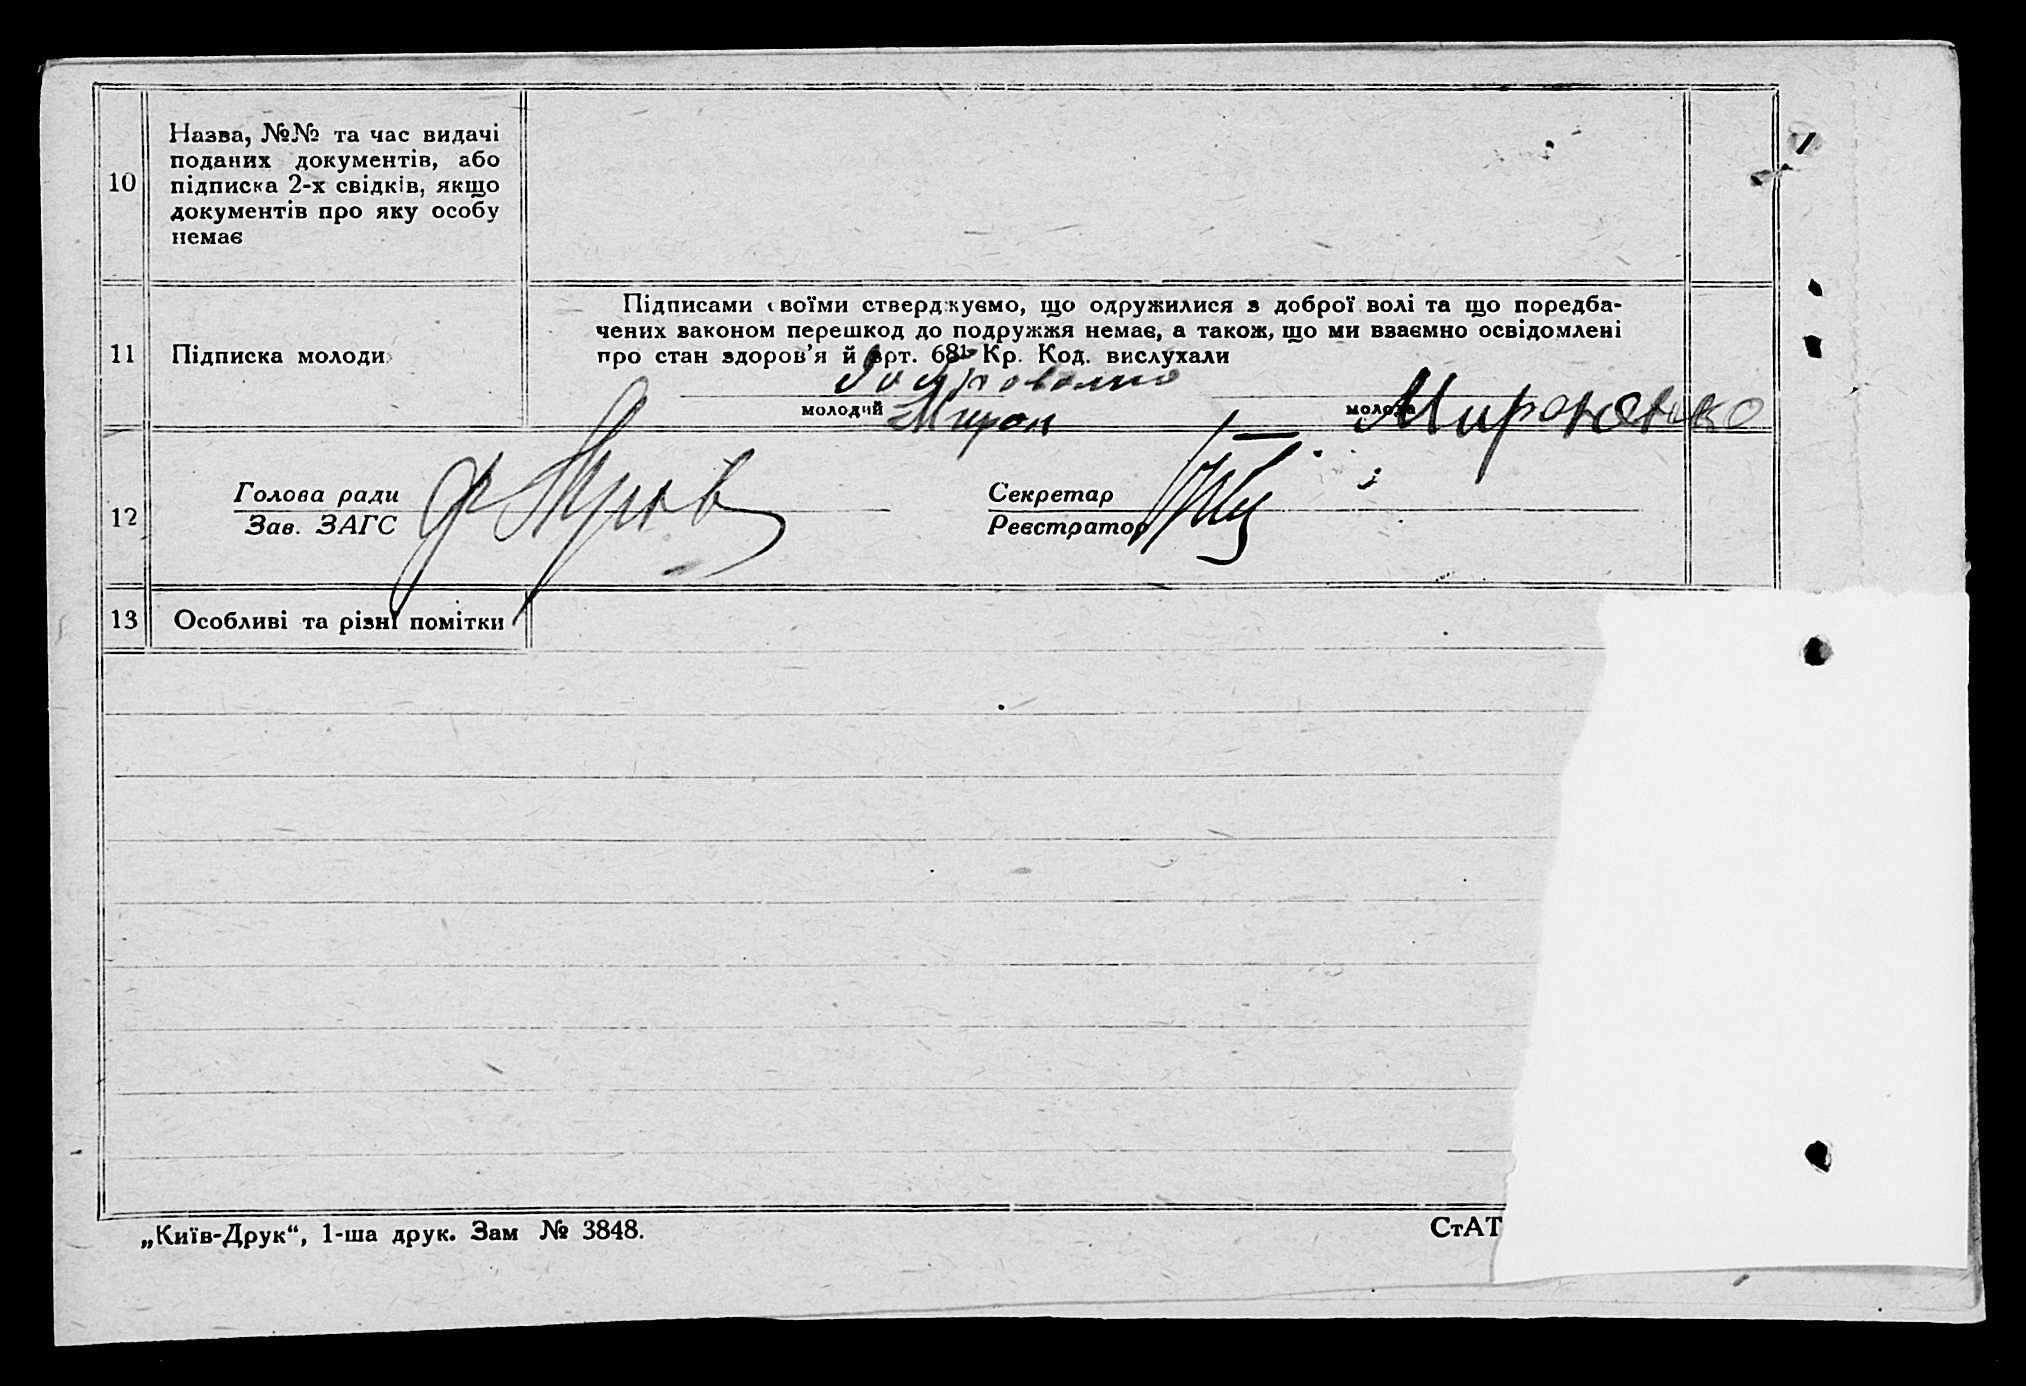 10
Назва, №№ та час видачі
поданих документів, або
підписка 2-х свідків, якщо
документів про яку особу
немає
11
Підписка молоди
Підписами своїми стверджуємо, що одружилися з доброї волі та що поредба-
чених законом перешкод до подружжя немає, а також, що ми взаємно освідомлені
про стан здоров’я й арт. 68¹ Кр. Код. вислухали
молодий
молода Миронэнко
12
Голова ради
Зав. ЗАГС
Секретар
Реєстратор
13
Особливі та різні помітки
„Київ-Друк“, 1-ша друк. Зам № 3848.
СтАТ